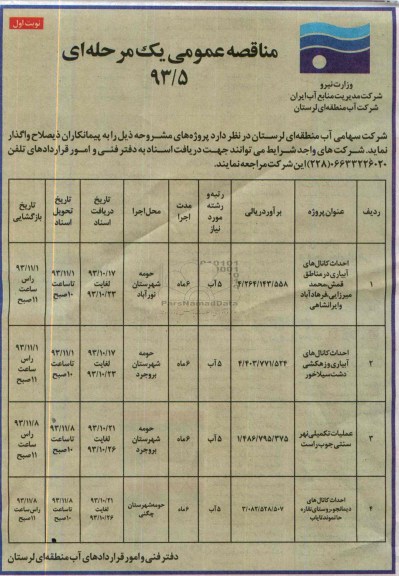 نوبت اول
مناقصه عمومی یک مرحله‌ای
۹۳/۵
وزارت نیرو
شرکت مدیریت منابع آب ایران
شرکت آب منطقه‌ای لرستان
شرکت سهامی آب منطقه‌ای لرستان در نظر دارد پروژه‌های مشروحه ذیل را به پیمانکاران ذیصلاح واگذار
نماید. شرکت های واجد شرایط می توانند جهت دریافت اسناد به دفتر فنی و امور قراردادهای تلفن
۰۶۶۳۳۲۲۶۰۲۰(۲۲۸) این شرکت مراجعه نمایند.
ردیف عنوان پروژه برآورد ریالی رتبه و رشته مورد نیاز مدت اجرا محل اجرا تاریخ دریافت اسناد تاریخ تحویل اسناد تاریخ بازگشایی
۱ احداث کانال های آبیاری در مناطق قمش محمد میرزایی، فرهادآباد و ایرانشاهی ۴/۲۶۴/۱۴۳/۵۵۸ ۵ آب ۶ماه حومه شهرستان نورآباد ۹۳/۱۰/۱۷ لغایت ۹۳/۱۰/۲۳ ۹۳/۱۱/۱ تا ساعت ۱۰صبح ۹۳/۱۱/۱ راس ساعت ۱۱صبح
۲ احداث کانال های آبیاری و زهکشی دشت سیلاخور ۴/۴۰۳/۷۷۱/۵۲۴ ۵ آب ۶ماه حومه شهرستان بروجرد ۹۳/۱۰/۱۷ لغایت ۹۳/۱۰/۲۳ ۹۳/۱۱/۱ تا ساعت ۱۰صبح ۹۳/۱۱/۱ راس ساعت ۱۱صبح
۳ عملیات تکمیلی نهر سنتی جوب راست ۱/۴۸۶/۷۹۵/۳۷۵ ۵ آب ۶ماه حومه شهرستان بروجرد ۹۳/۱۰/۲۱ لغایت ۹۳/۱۰/۲۶ ۹۳/۱۱/۸ تا ساعت ۱۰صبح ۹۳/۱۱/۸ راس ساعت ۱۱صبح
۴ احداث کانال های روستای نقاره ۲/۰۸۲/۵۲۸/۵۰۷ ۵ آب ۶ماه حومه شهرستان چگنی ۹۳/۱۰/۲۱ لغایت ۹۳/۱۰/۲۶ ۹۳/۱۱/۸ تا ساعت ۱۰صبح ۹۳/۱۱/۸ راس ساعت ۱۱صبح
دفتر فنی و امور قراردادهای آب منطقه‌ای لرستان